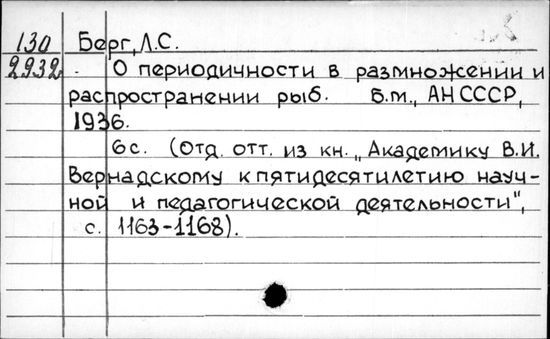 130 Берг, Л.С.
2932 О периодичности в размножении и
распространении рыб. Б.м., АН СССР,
1936.
6с. (Отд. отт. из кн. „Академику В.И.
Вернадскому к пятидесятилетию науч-
ной и педагогической деятельности",
с. 1163-1168).